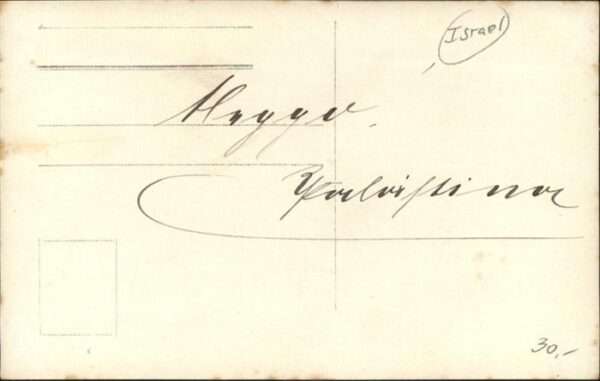 Israel
Aleppo.
Palästina
30,-